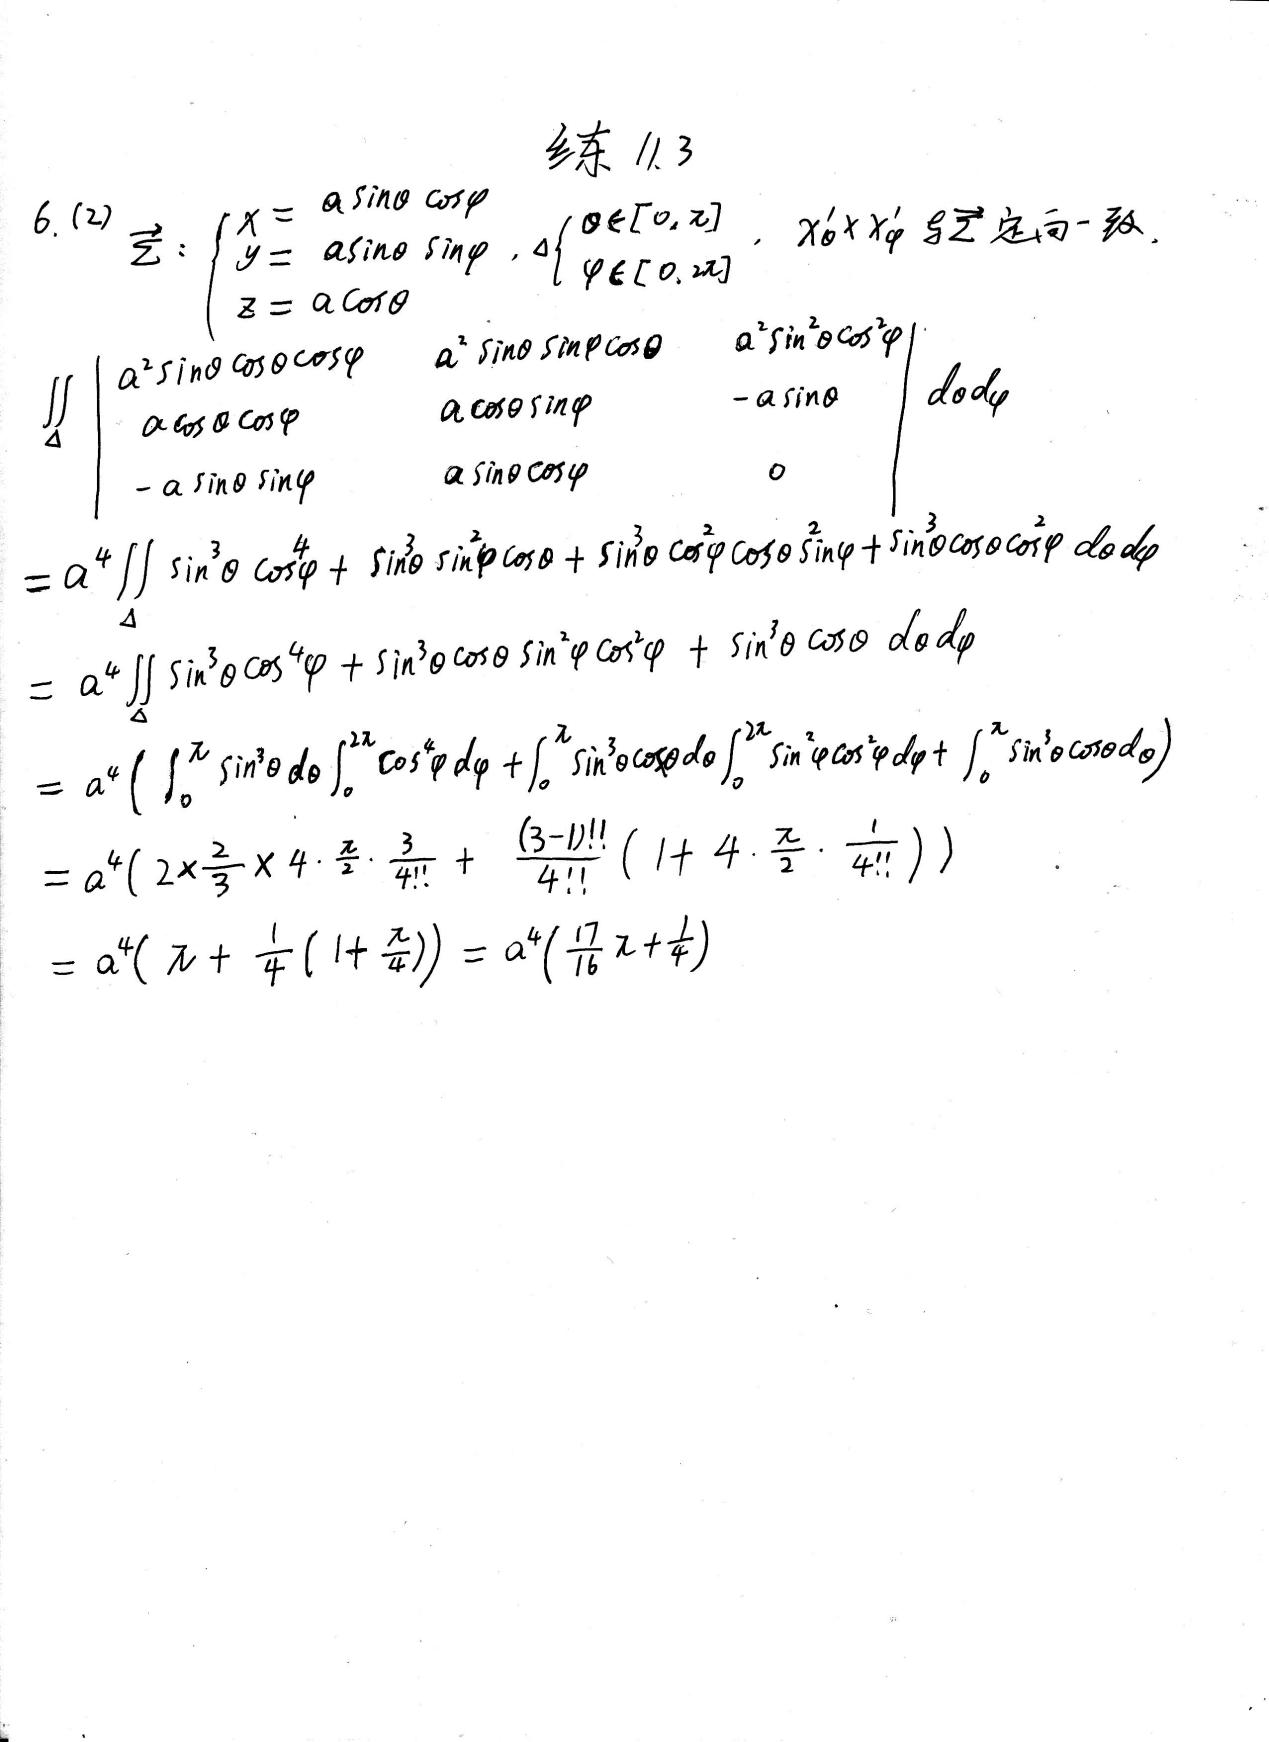 练 11.3
6.(2) Σ⃗ : { x = a sinθ cosφ
y = a sinθ sinφ , Δ { θ∈[0,π] φ∈[0,2π] , x'θ × x'φ 与Σ⃗ 定向一致.
z = a cosθ
∬Δ | a² sinθ cosθ cosφ  a² sinθ sinφ cosθ  a² sin²θ cos²φ |
a cosθ cosφ  a cosθ sinφ  -a sinθ  dθdφ
-a sinθ sinφ  a sinθ cosφ  0
= a⁴ ∬Δ sin³θ cos⁴φ + sin³θ sin²φ cosθ + sin³θ cos²φ cosθ sin²φ + sin³θ cosθ cos²φ dθdφ
= a⁴ ∬Δ sin³θ cos⁴φ + sin³θ cosθ sin²φ cos²φ + sin³θ cosθ dθdφ
= a⁴ ( ∫₀^π sin³θ dθ ∫₀^2π cos⁴φ dφ + ∫₀^π sin³θ cosθ dθ ∫₀^2π sin²φ cos²φ dφ + ∫₀^π sin³θ cosθ dθ )
= a⁴ ( 2×2/3 × 4 · π/2 · 3/4!! + (3-1)!!/4!! ( 1 + 4 · π/2 · 1/4!! ) )
= a⁴ ( π + 1/4 ( 1 + π/4 ) ) = a⁴ ( 17/16 π + 1/4 )